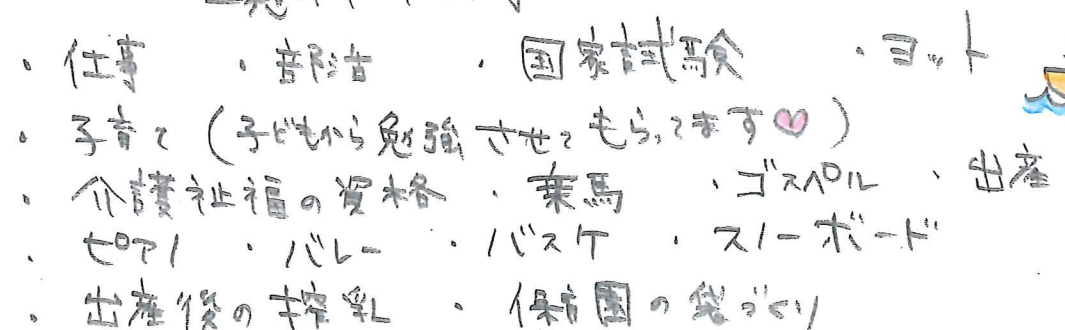 ・仕事 ・部活 ・国家試験 ・ヨット
・子育て(子どもから勉強させてもらってます♡)
・介護福祉の資格 ・乗馬 ・ゴスペル ・出産
・ピアノ ・バレー ・バスケ ・スノーボード
・出産後の搾乳 ・保育園の袋づくり